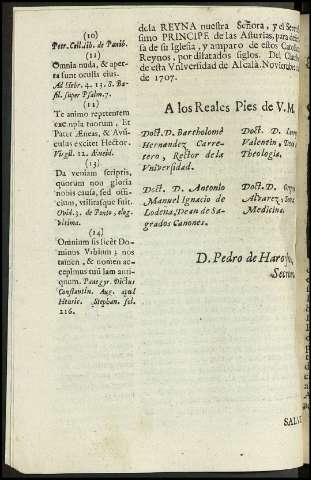 (10)
Petr. Cell. lib. de Panib.
(11)
Omnia nuda, & aper-
ta sunt oculis eius.
Ad Hebr. 4. 13. B. Ba-
sil. super Psalm. 7.
(12)
Te animo repetentem
exempla tuorum, Et
Pater Æneas, & Avũ-
culus excitet Hector.
Virgil. 12. Æneid.
(13)
Da veniam scriptis,
quorum non gloria
nobis causa, sed offi-
cium, vtilitasque fuit.
Ovid. 3. de Ponto, eleg.
vltima.
(14)
Omnium sis licèt Do-
minus Vrbium; nos
tamen, & nomen ac-
cepimus tuũ iam anti-
quum. Panegyr. Dictus
Constantin. Aug. apud
Henric. Stephan. fol.
216.
de la REYNA nuestra Señora, y el Seren
simo PRINCIPE de las Asturias, para
sa de su Iglesia, y amparo de estos Catol
Reynos, por dilatados siglos. Del Clau
de esta Vniversidad de Alcalà. Noviembre
de 1707.
A los Reales Pies de V. M.
Doct. D. Bartholomè
Hernandez Carre-
tero, Rector de la
Vniversidad.
Doct. D.
Valentin,
Theologia.
Doct. D. Antonio
Manuel Ignacio de
Lodeña, Dean de Sa-
grados Canones.
Doct. D.
Alvarez,
Medicina.
D. Pedro de Haro
Secret
SALVE